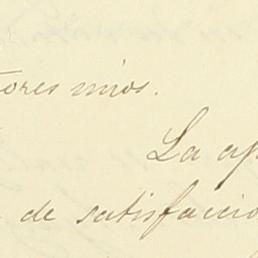 tores mios.
La ap
de satisfaccio